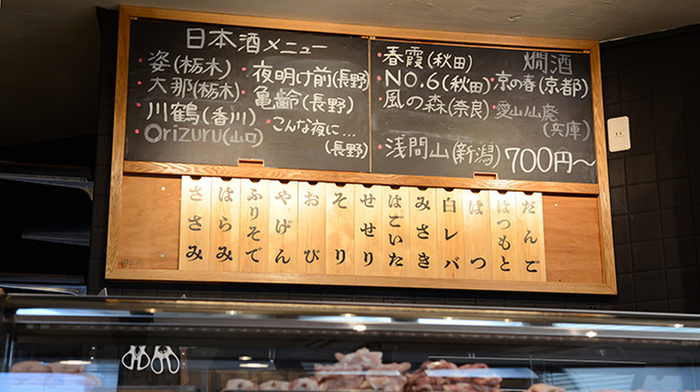 日本酒メニュー
姿(栃木)
大那(栃木)
川鶴(香川)
Orizuru(山口)
夜明け前(長野)
亀齢(長野)
こんな夜に…
(長野)
春霞(秋田)
NO.6(秋田)
風の森(奈良)
浅間山(新潟)
燗酒
京の春(京都)
愛山/山廃
(兵庫)
700円〜
だんご
はつもと
はつ
白レバ
みさき
はごいた
せせり
そり
おび
やげん
ふりそで
はらみ
ささみ